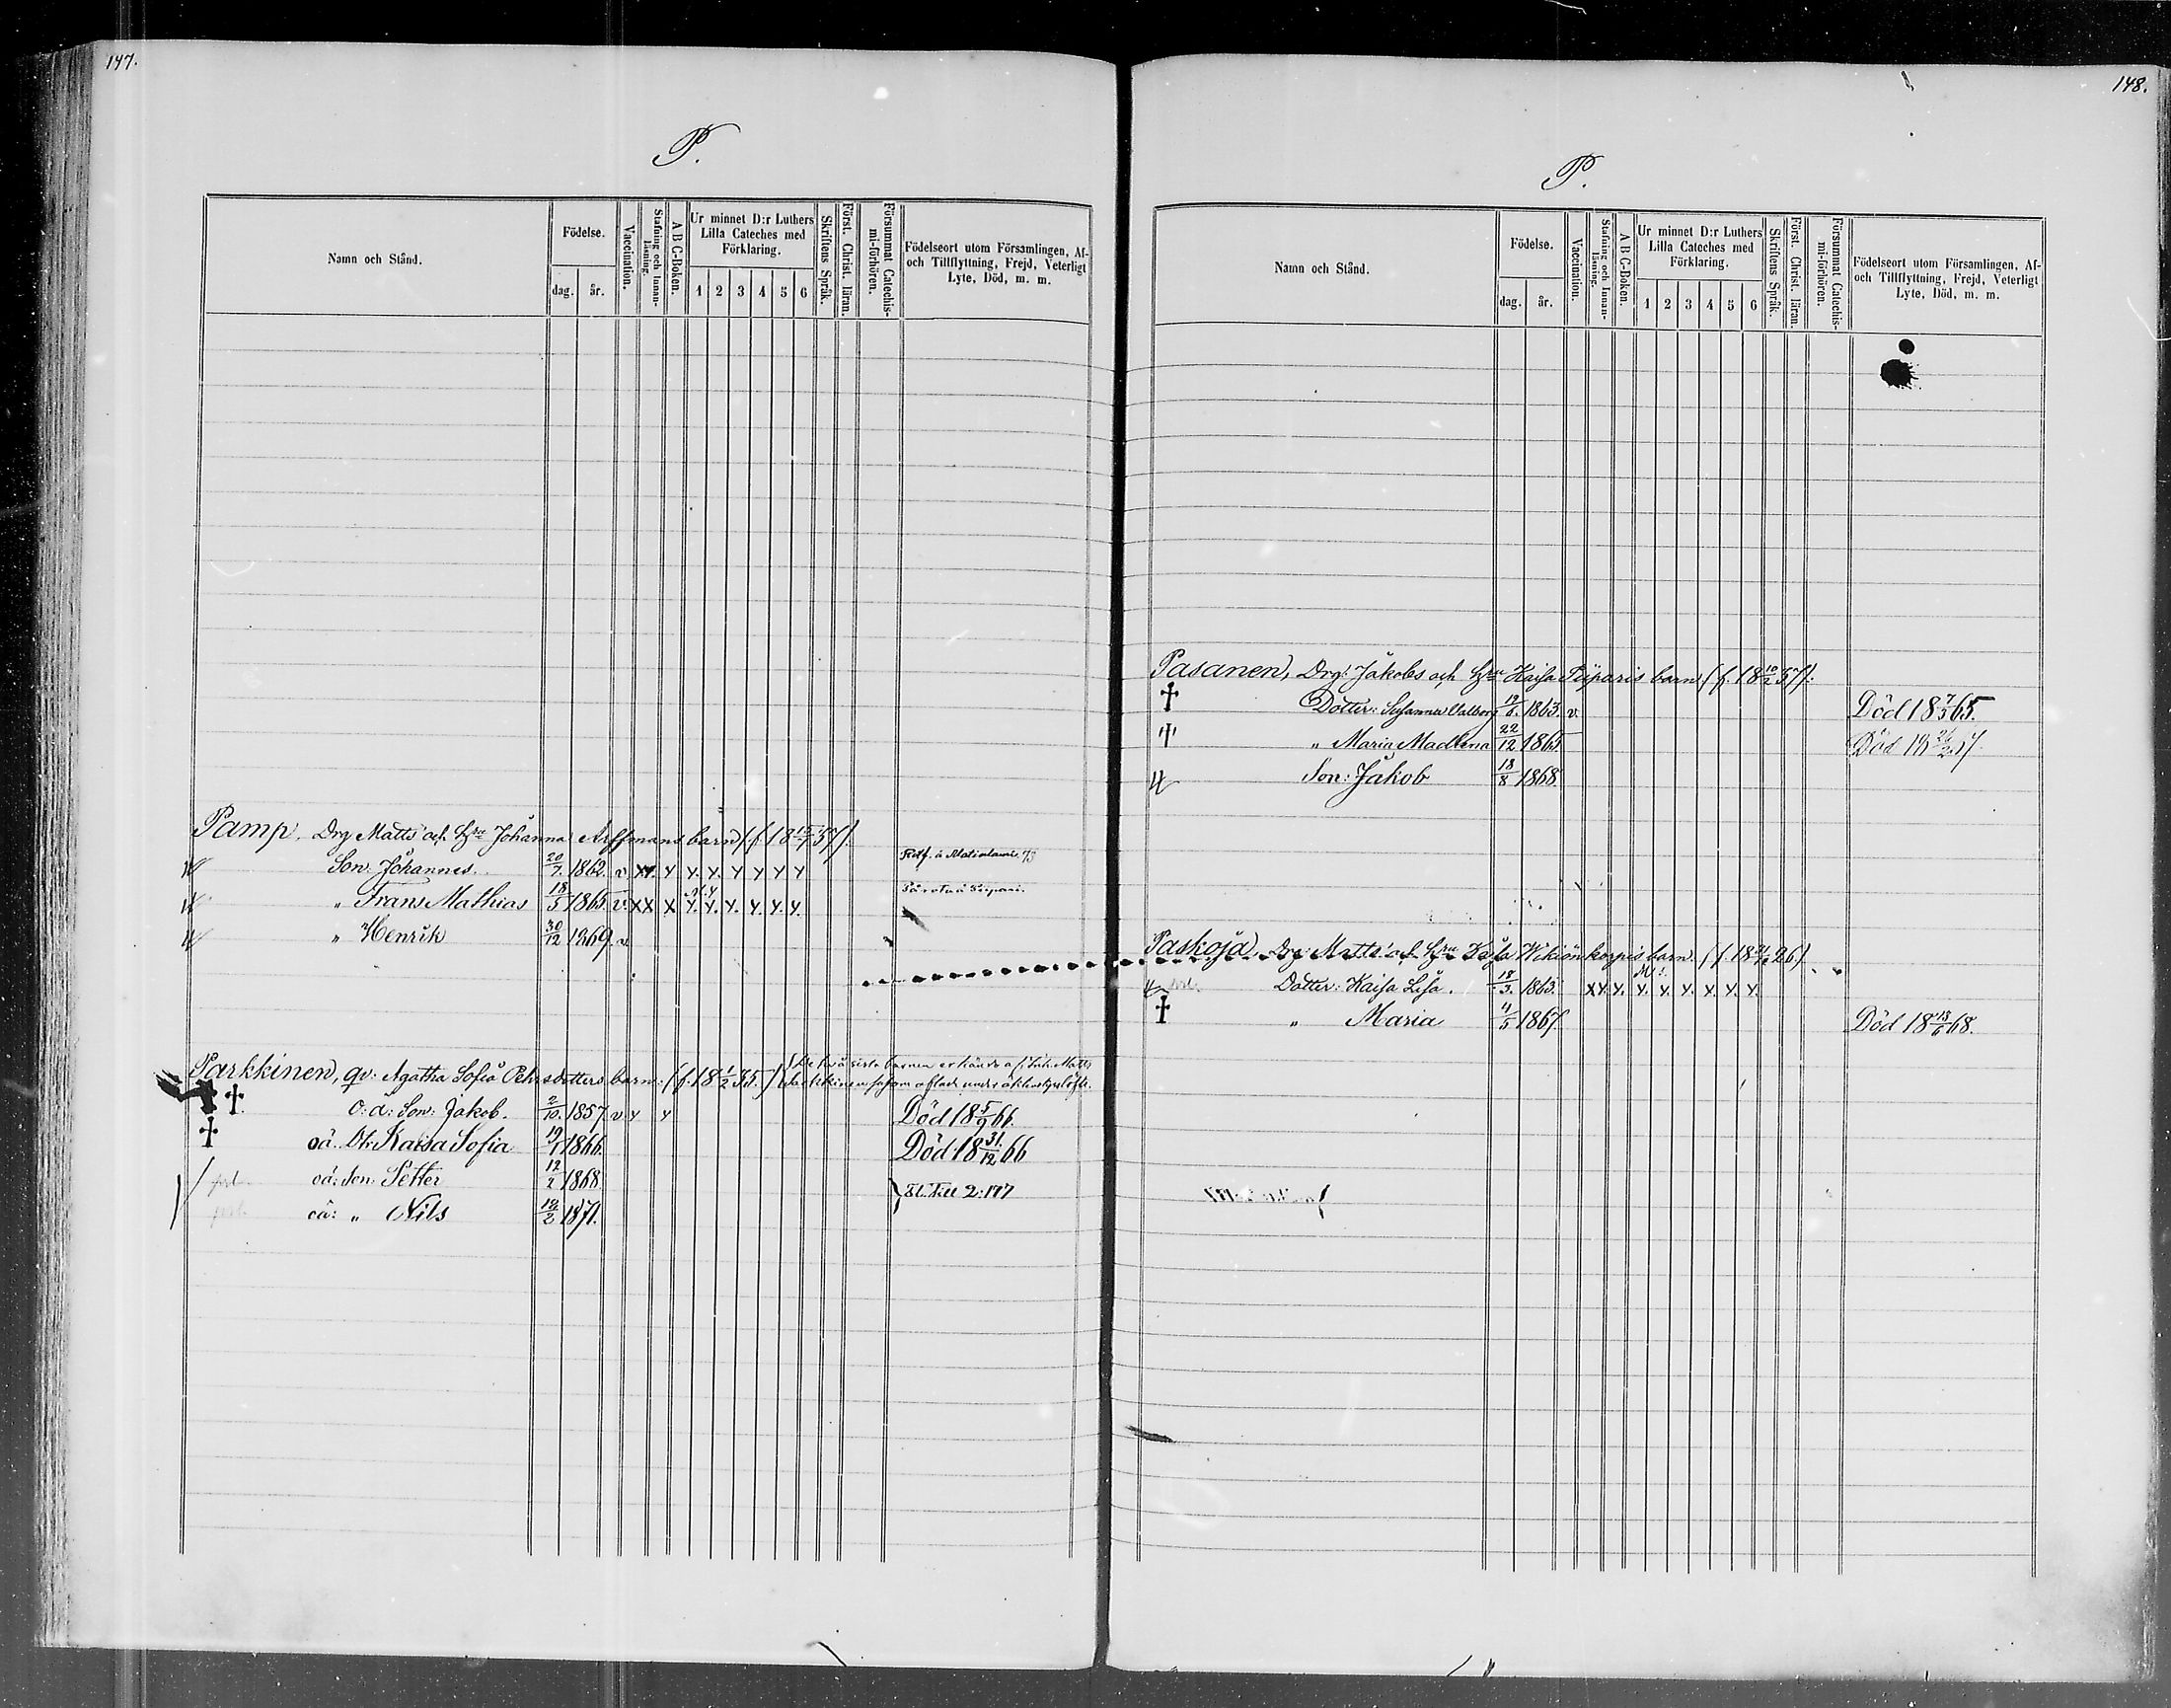 147.
P.
Namn och Stånd.
Födelse.
dag. år.
Vaccination.
Stafning och Innanläsning.
A B C-Boken.
Ur minnet D:r Luthers Lilla Cateches med Förklaring.
1 2 3 4 5 6
Skriftens Språk.
Först. Christ. läran.
Försummat Catechismi-förhören.
Födelseort utom Församlingen, Af- och Tillflyttning, Frejd, Veterligt Lyte, Död, m. m.
Pamp, Drg Matts och Hru Johanna Arffmans barn (f. 18 15/7 37).
Son: Johannes. 20/7. 1862. v.
" Frans Mathias 18/5 1865. v.
" Henrik 30/12 1869. v.
Parkkinen, qv: Agatha Sofia Pehrsdotters barn: (f. 18 1/2 35.)
De två sista barnen
o:ä: Son: Jakob. 2/10. 1857. v Död 18 5/9 66.
oä. Dr. Kaisa Sofia 19/1 1866. Död 18 31/12 66
oä: Son: Petter 12/2 1868.
oä: " Nils 1871.
148.
P.
Namn och Stånd.
Födelse.
dag. år.
Vaccination.
Stafning och Innanläsning.
A B C-Boken.
Ur minnet D:r Luthers Lilla Cateches med Förklaring.
1 2 3 4 5 6
Skriftens Språk.
Först. Christ. läran.
Försummat Catechismi-förhören.
Födelseort utom Församlingen, Af- och Tillflyttning, Frejd, Veterligt Lyte, Död, m. m.
Pasanen, Drg: Jakobs och Hru Kaisa Piiparis barn (f. 18 10/2 37).
Dotter: Susanna Valborg 1863. v. Död 18 7/5 65.
" Maria Madlena 22/12 1865
Son: Jakob 18/8 1868.
Paskoja, Drg: Matts och Hru Kajsa barn.
Dotter: Kaisa Lisa. 18/3. 1863.
" Maria 1867. Död 18 13/6 68.